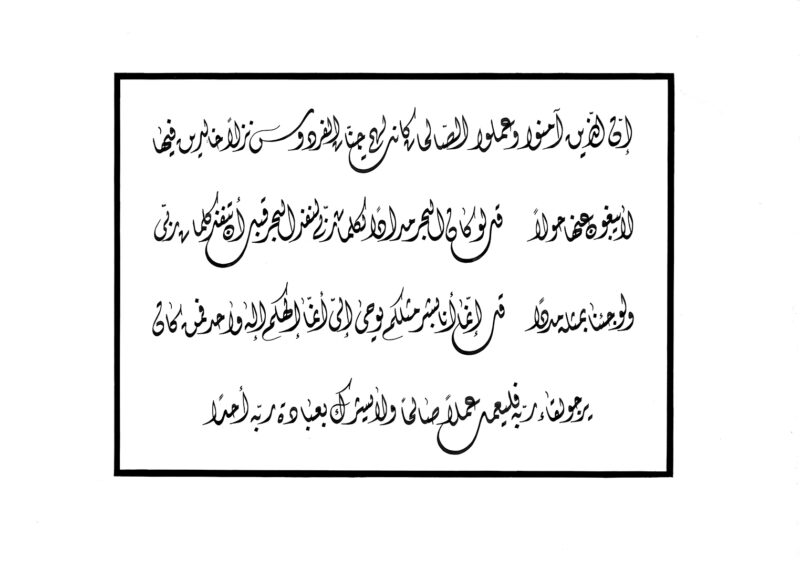 إنّ الذّين آمنوا وعملوا الصّالحات كانت لهم جنّات الفردوس نزلاً خالدين فيها
لا يبغون عنها حولاً قل لو كان البحر مدادًا لكلمات ربّي لنفذ البحر قبل أن تنفذ كلمات ربّي
ولو جئنا بمثله مددًا قل إنّما أنا بشر مثلكم يوحى إليّ أنّما إلهكم إله واحد فمن كان
يرجو لقاء ربّه فليعمل عملاً صالحًا ولا يشرك بعبادة ربّه أحدًا